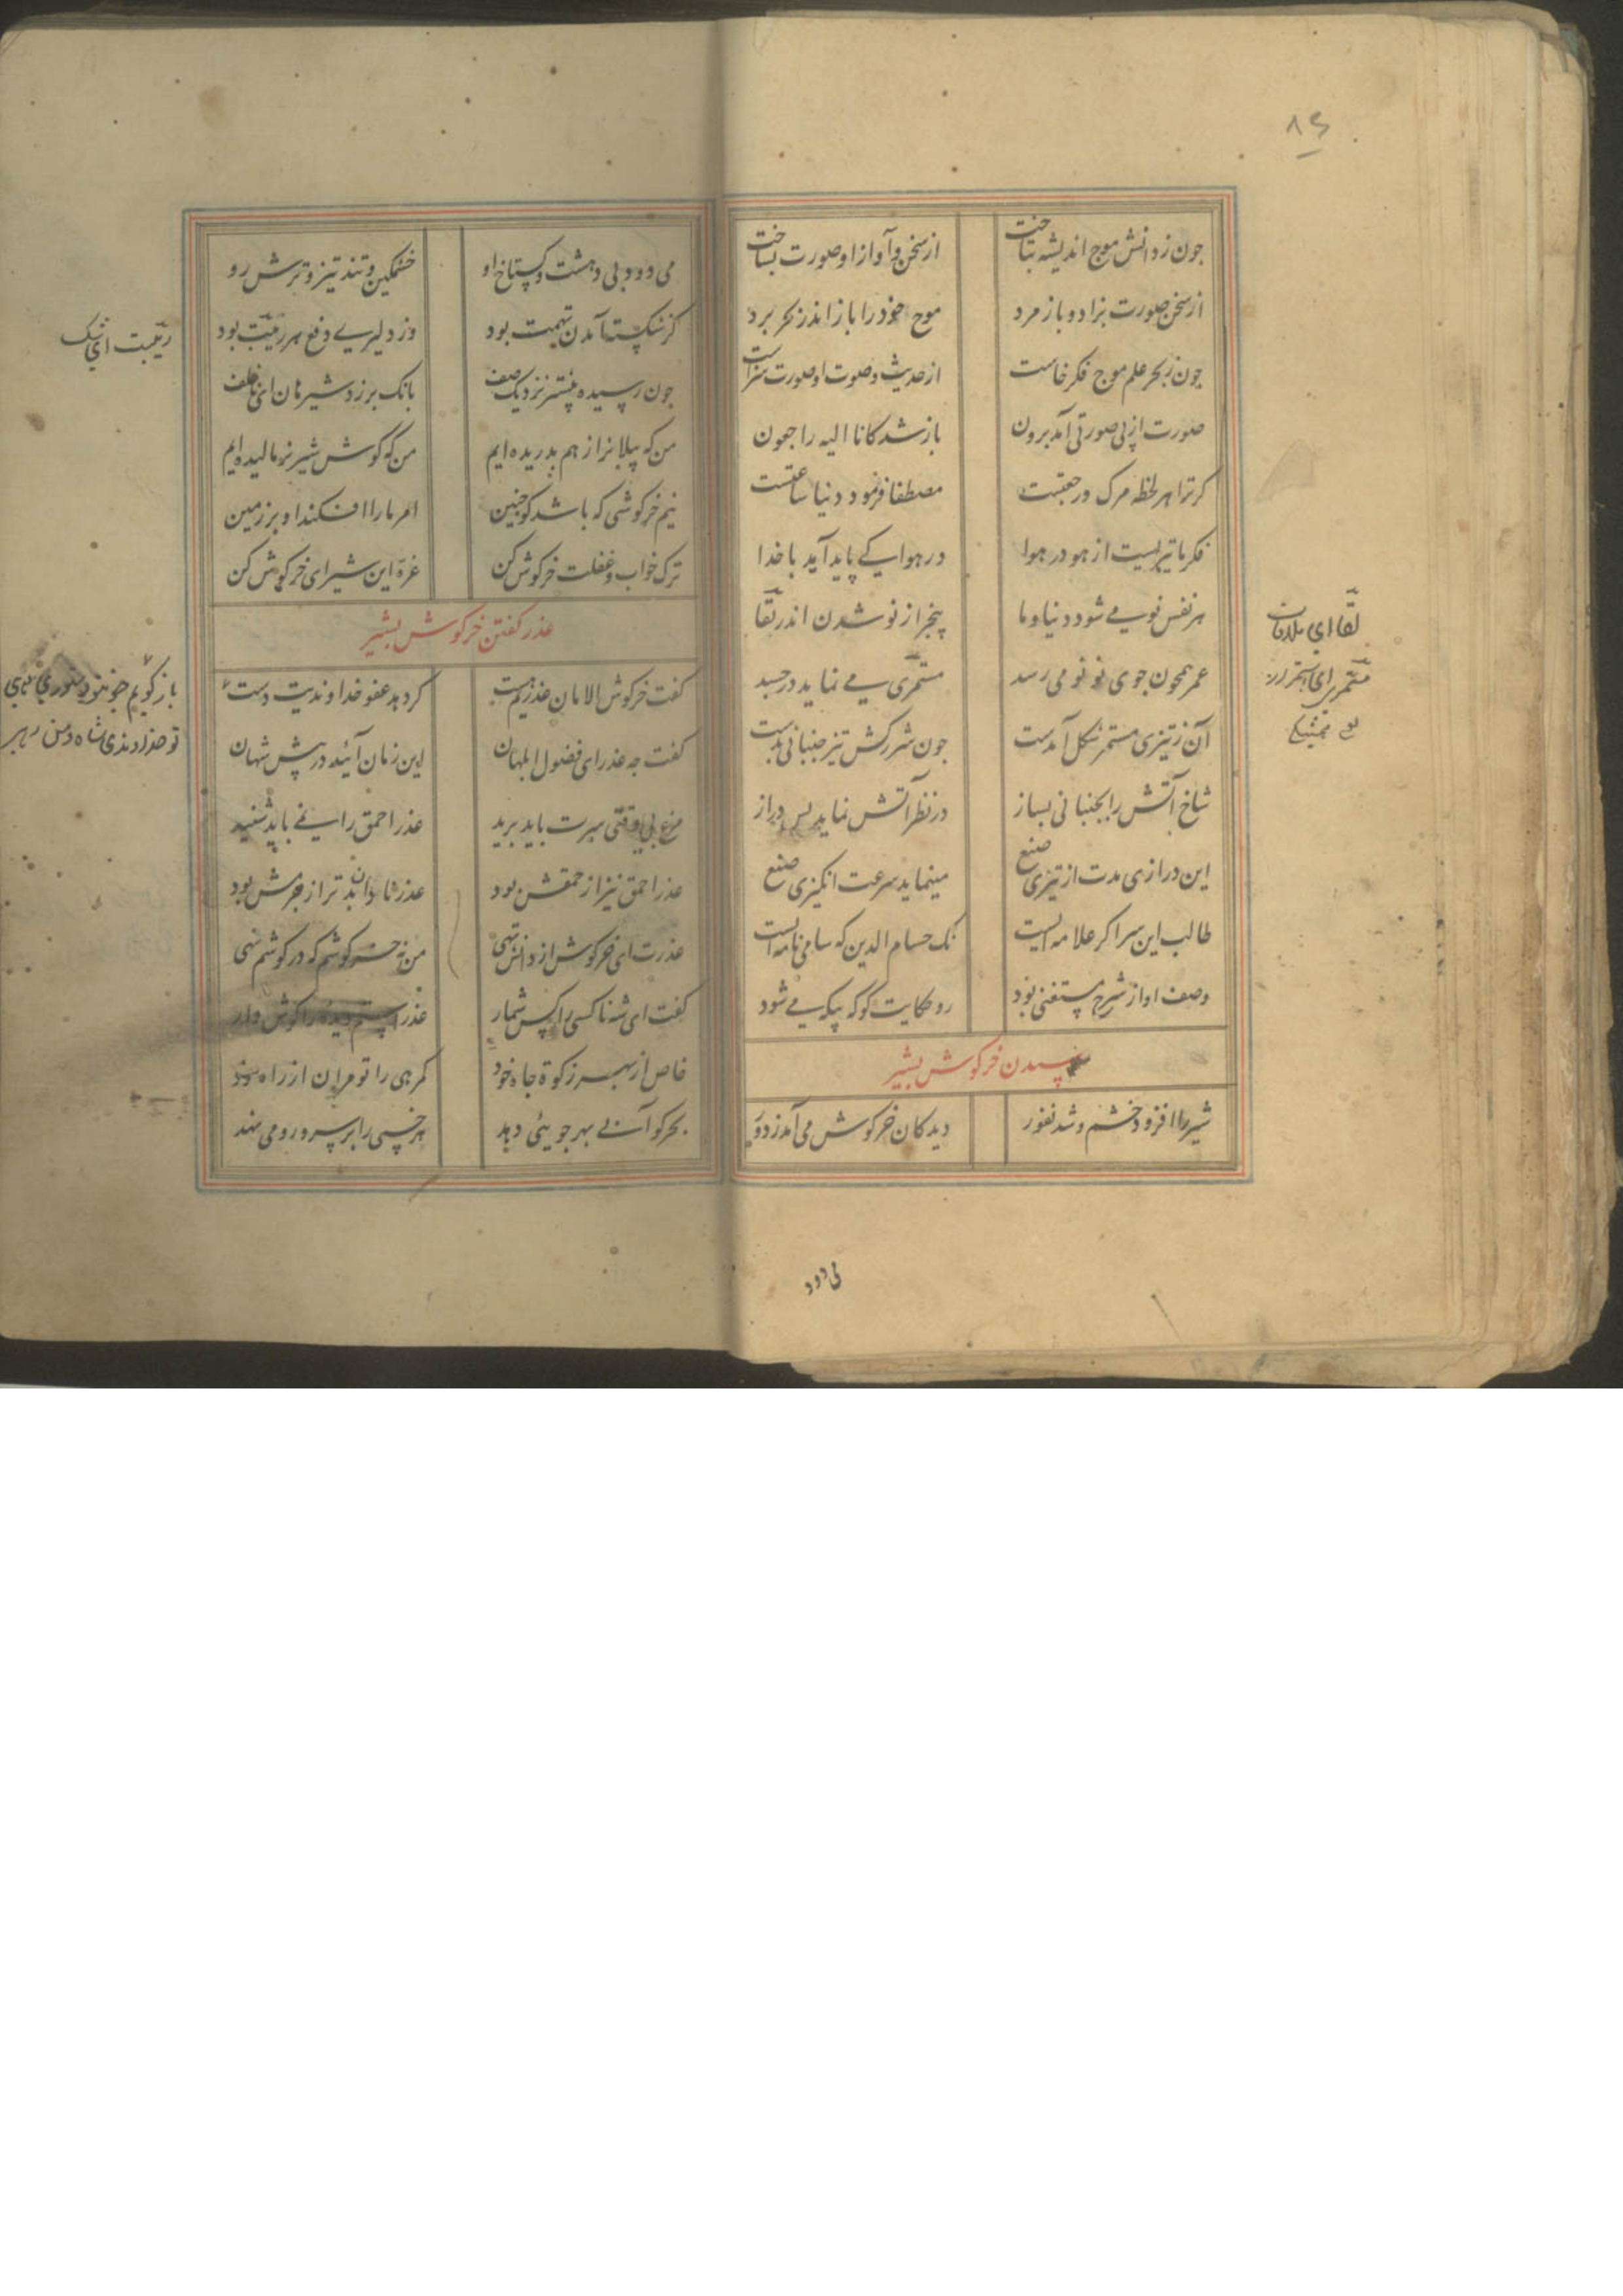 ٨٤
جون ز دانش موج اندیشه بتاخت
از سخن و آواز او صورت بساخت
از سخن صورت بزاد و باز مرد
موج خود را باز اندر بحر برد
جون ز بحر علم موج فکر خاست
از حدیث و صوت او صورت سزاست
صورت از بی صورتی آمد برون
باز شد کانا الیه راجعون
کر ترا هر لحظه مرک و رجعتست
مصطفا فرمود دنیا ساعتست
فکر ما تیریست از هو در هوا
در هوا کے پاید آید با خدا
هر نفس نو می شود دنیا و ما
بیخبر از نو شدن اندر بقا
عمر همجون جوی نو نو می رسد
مستمری می نماید در جسد
آن ز تیزی مستمر شکل آمدست
جون شرر کش تیز جنبانی بدست
شاخ آتش را بجنبانی بساز
در نظر آتش نماید بس دراز
این درازی مدت از تیزی صنع
مینماید سرعت انکیزی صنع
طالب این سر اکر علامه ایست
نک حسام الدین که سامی نامه ایست
وصف او از شرح مستغنی بود
رو حکایت کو که بیکه می شود
رسیدن خرکوش بشیر
شیر را افزود خشم و شد نفور
دید کان خرکوش می آمد ز دور
می دود
لقا ای ملاقات
مستمری ای استمرار
می دود بی دهشت و کستاخ او
خشمکین و تند و تیز و ترش رو
کز شکسته آمدن تهمت بود
وز دلیری دفع هر ریبت بود
جون رسید پیشتر نزدیک صف
بانک بر زد شیر هان ای ناخلف
من که پیلانرا ز هم بدریده ایم
من که کوش شیر نر مالیده ایم
نیم خرکوشی که باشد کو جنین
امر ما را افکند او بر زمین
ترک خواب و غفلت خرکوش کن
غره این شیر ای خر کوش کن
عذر کفتن خرکوش بشیر
کفت خرکوش الامان عذریم هست
کر دهد عفو خداوندیت دست
کفت جه عذر ای فضول ابلهان
این زمان آیند در پیش شهان
مرغ بی وقتی سرت باید برید
عذر احمق را نمی باید شنید
عذر احمق نیز از حمقش بود
عذر نادان بدتر از جرمش بود
عذرت ای خرکوش از دانش تهی
من نه خرکوشم که در کوشم نهی
کفت ای شه ناکسی را کس شمار
عذر استم دیده را کوش دار
خاص از بهر زکوة جاه خود
کمرهی را تو مران از راه خود
بحر کو آبی بهر جوئی دهد
هر خسی را بر سر و رو می نهد
ریبت ای شک
باز کویم جون تو دستوری دهی
تو خداوندی و شاه و من رهی